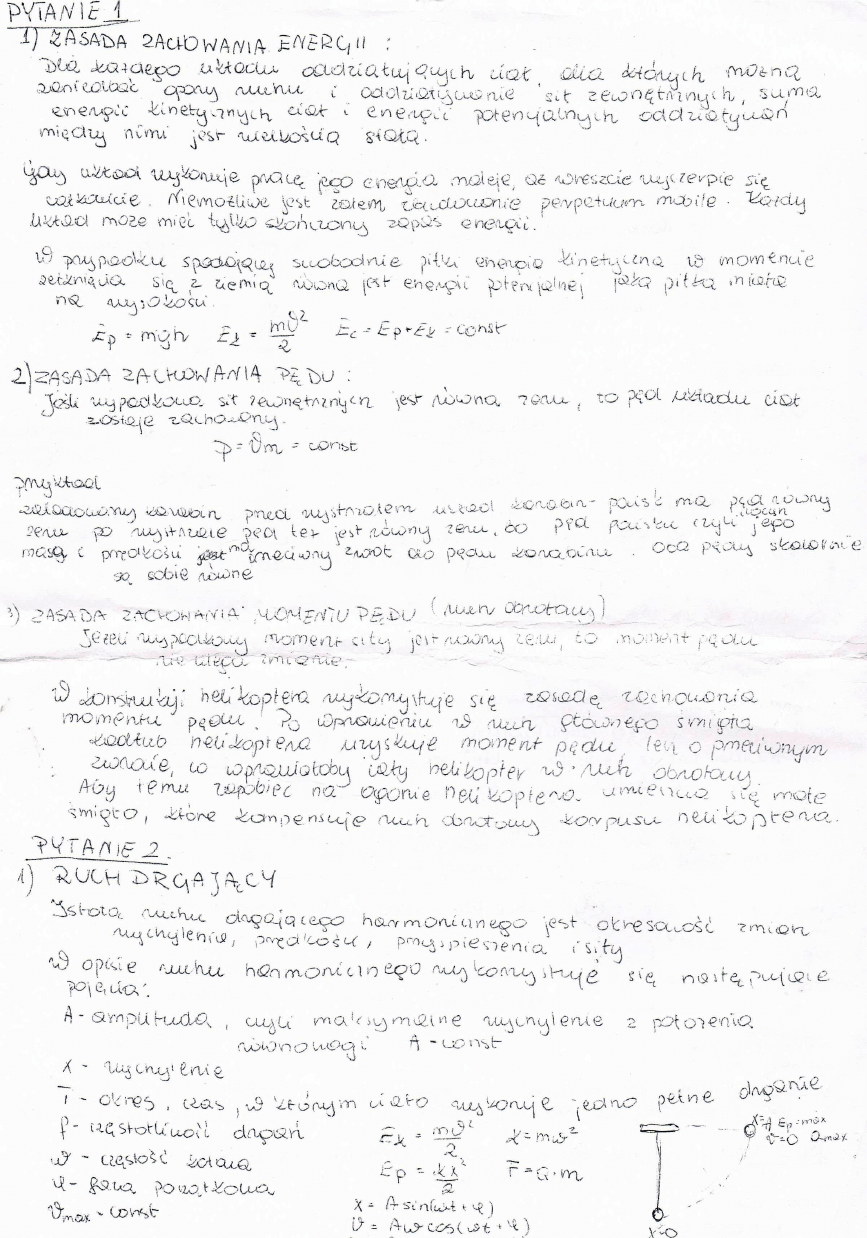 PYTANIE 1
1) ZASADA ZACHOWANIA ENERGII :
Dla każdego układu oddziałujących ciał, dla których można
zaniedbać opory ruchu i oddziaływanie sił zewnętrznych, suma
energii kinetycznych ciał i energii potencjalnych oddziaływań
między nimi jest wielkością stałą.
Gdy układ wykonuje pracę jego energia maleje, aż wreszcie wyczerpie się
całkowicie. Niemożliwe jest zatem zbudowanie perpetuum mobile. Każdy
układ może mieć tylko skończony zapas energii.
W przypadku spadającej swobodnie piłki energia kinetyczna w momencie
zetknięcia się z ziemią równa jest energii potencjalnej jaką piłka miała
na wysokości.
Ep = mgh Ek = mv²/2 Ec = Ep+Ek = const
2) ZASADA ZACHOWANIA PĘDU :
Jeśli wypadkowa sił zewnętrznych jest równa zeru, to pęd układu ciał
zostaje zachowany.
p = vm = const
przykład
załadowany karabin przed wystrzałem układ karabin-pocisk ma pęd równy
zeru po wystrzale pęd też jest równy zeru, bo pęd pocisku czyli iloczyn jego
masy i prędkości ma przeciwny zwrot do pędu karabinu. Oba pędy skalarnie
są sobie równe
3) ZASADA ZACHOWANIA MOMENTU PĘDU (ruch obrotowy)
Jeżeli wypadkowy moment siły jest równy zeru, to moment pędu
nie ulega zmianie.
W konstrukcji helikoptera wykorzystuje się zasadę zachowania
momentu pędu. Po wprawieniu w ruch głównego śmigła
kadłub helikoptera uzyskuje moment pędu, lecz o przeciwnym
zwrocie, co wprawiałoby cały helikopter w ruch obrotowy.
Aby temu zapobiec na ogonie helikoptera umieszcza się małe
śmigło, które kompensuje ruch obrotowy korpusu helikoptera.
PYTANIE 2.
1) RUCH DRGAJĄCY
Istotą ruchu drgającego harmonicznego jest okresowość zmian
wychylenia, prędkości, przyspieszenia i siły
W opisie ruchu harmonicznego wykorzystuje się następujące
pojęcia:
A - amplituda, czyli maksymalne wychylenie z położenia
równowagi A - const
x - wychylenie
T - okres, czas, w którym ciało wykonuje jedno pełne drganie
f - częstotliwość drgań Ek = mv²/2 k = mω²
ω - częstość kołowa Ep = kx²/2 F = a·m
φ - faza początkowa x = A sin(ωt + φ)
Vmax - const v = Aω cos(ωt + φ)
x=A Ep=max
v=0 amax
x=0